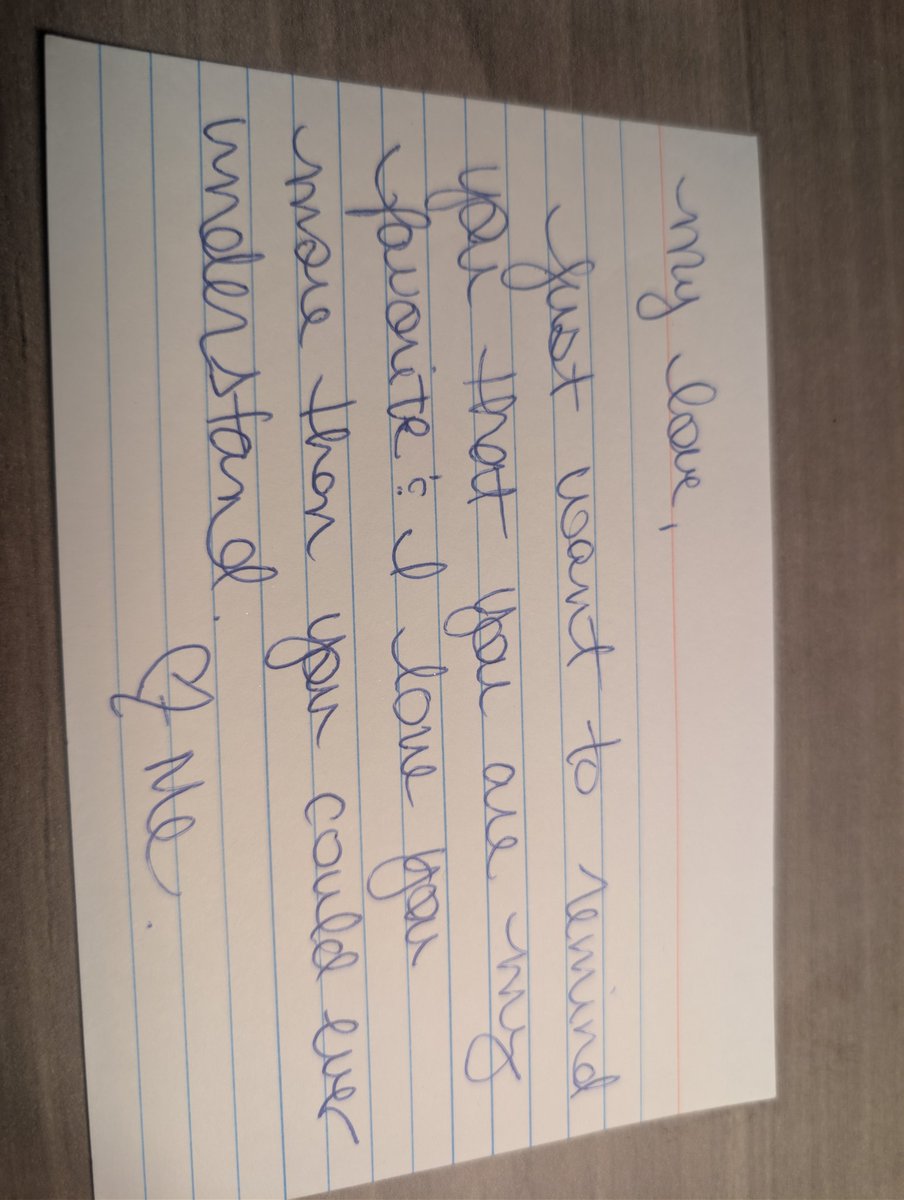 My love,
Just want to remind
you that you are my
favorite & I love you
more than you could ever
understand.
♡ Me.